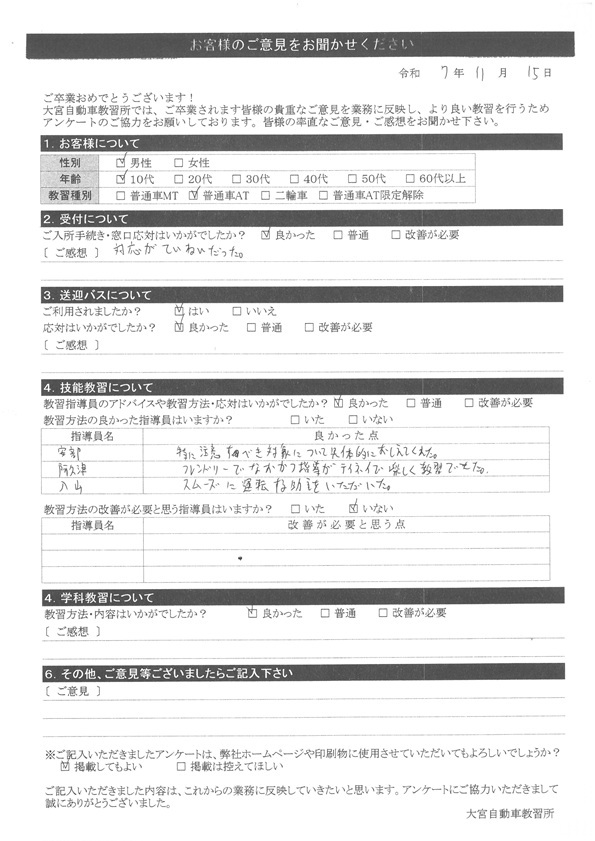 お客様のご意見をお聞かせください
令和 7年 11月 15日
ご卒業おめでとうございます！
大宮自動車教習所では、ご卒業されます皆様の貴重なご意見を業務に反映し、より良い教習を行うため
アンケートのご協力をお願いしております。皆様の率直なご意見・ご感想をお聞かせ下さい。
1. お客様について
性別 ☑ 男性 □ 女性
年齢 ☑ 10代 □ 20代 □ 30代 □ 40代 □ 50代 □ 60代以上
教習種別 □ 普通車MT ☑ 普通車AT □ 二輪車 □ 普通車AT限定解除
2. 受付について
ご入所手続き・窓口応対はいかがでしたか？ ☑ 良かった □ 普通 □ 改善が必要
[ ご感想 ] 対応がていねいだった。
3. 送迎バスについて
ご利用されましたか？ ☑ はい □ いいえ
応対はいかがでしたか？ ☑ 良かった □ 普通 □ 改善が必要
[ ご感想 ]
4. 技能教習について
教習指導員のアドバイスや教習方法・応対はいかがでしたか？ ☑ 良かった □ 普通 □ 改善が必要
教習方法の良かった指導員はいますか？ □ いた □ いない
指導員名 良かった点
特に注意すべき対象について具体的におしえてくれた。
阿久津 フレンドリーでなおかつ指導がテイネイで楽しく教習できた。
入山 スムーズに運転な助言をいただいた。
教習方法の改善が必要と思う指導員はいますか？ □ いた ☑ いない
指導員名 改善が必要と思う点
4. 学科教習について
教習方法・内容はいかがでしたか？ ☑ 良かった □ 普通 □ 改善が必要
[ ご感想 ]
6. その他、ご意見等ございましたらご記入下さい
[ ご意見 ]
※ご記入いただきましたアンケートは、弊社ホームページや印刷物に使用させていただいてもよろしいでしょうか？
☑ 掲載してもよい □ 掲載は控えてほしい
ご記入いただきました内容は、これからの業務に反映していきたいと思います。アンケートにご協力いただきまして
誠にありがとうございました。
大宮自動車教習所